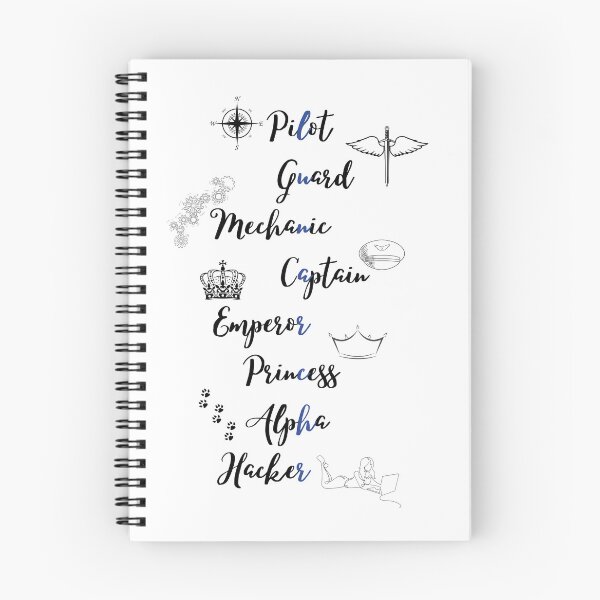 Pilot
Guard
Mechanic
Captain
Emperor
Princess
Alpha
Hacker